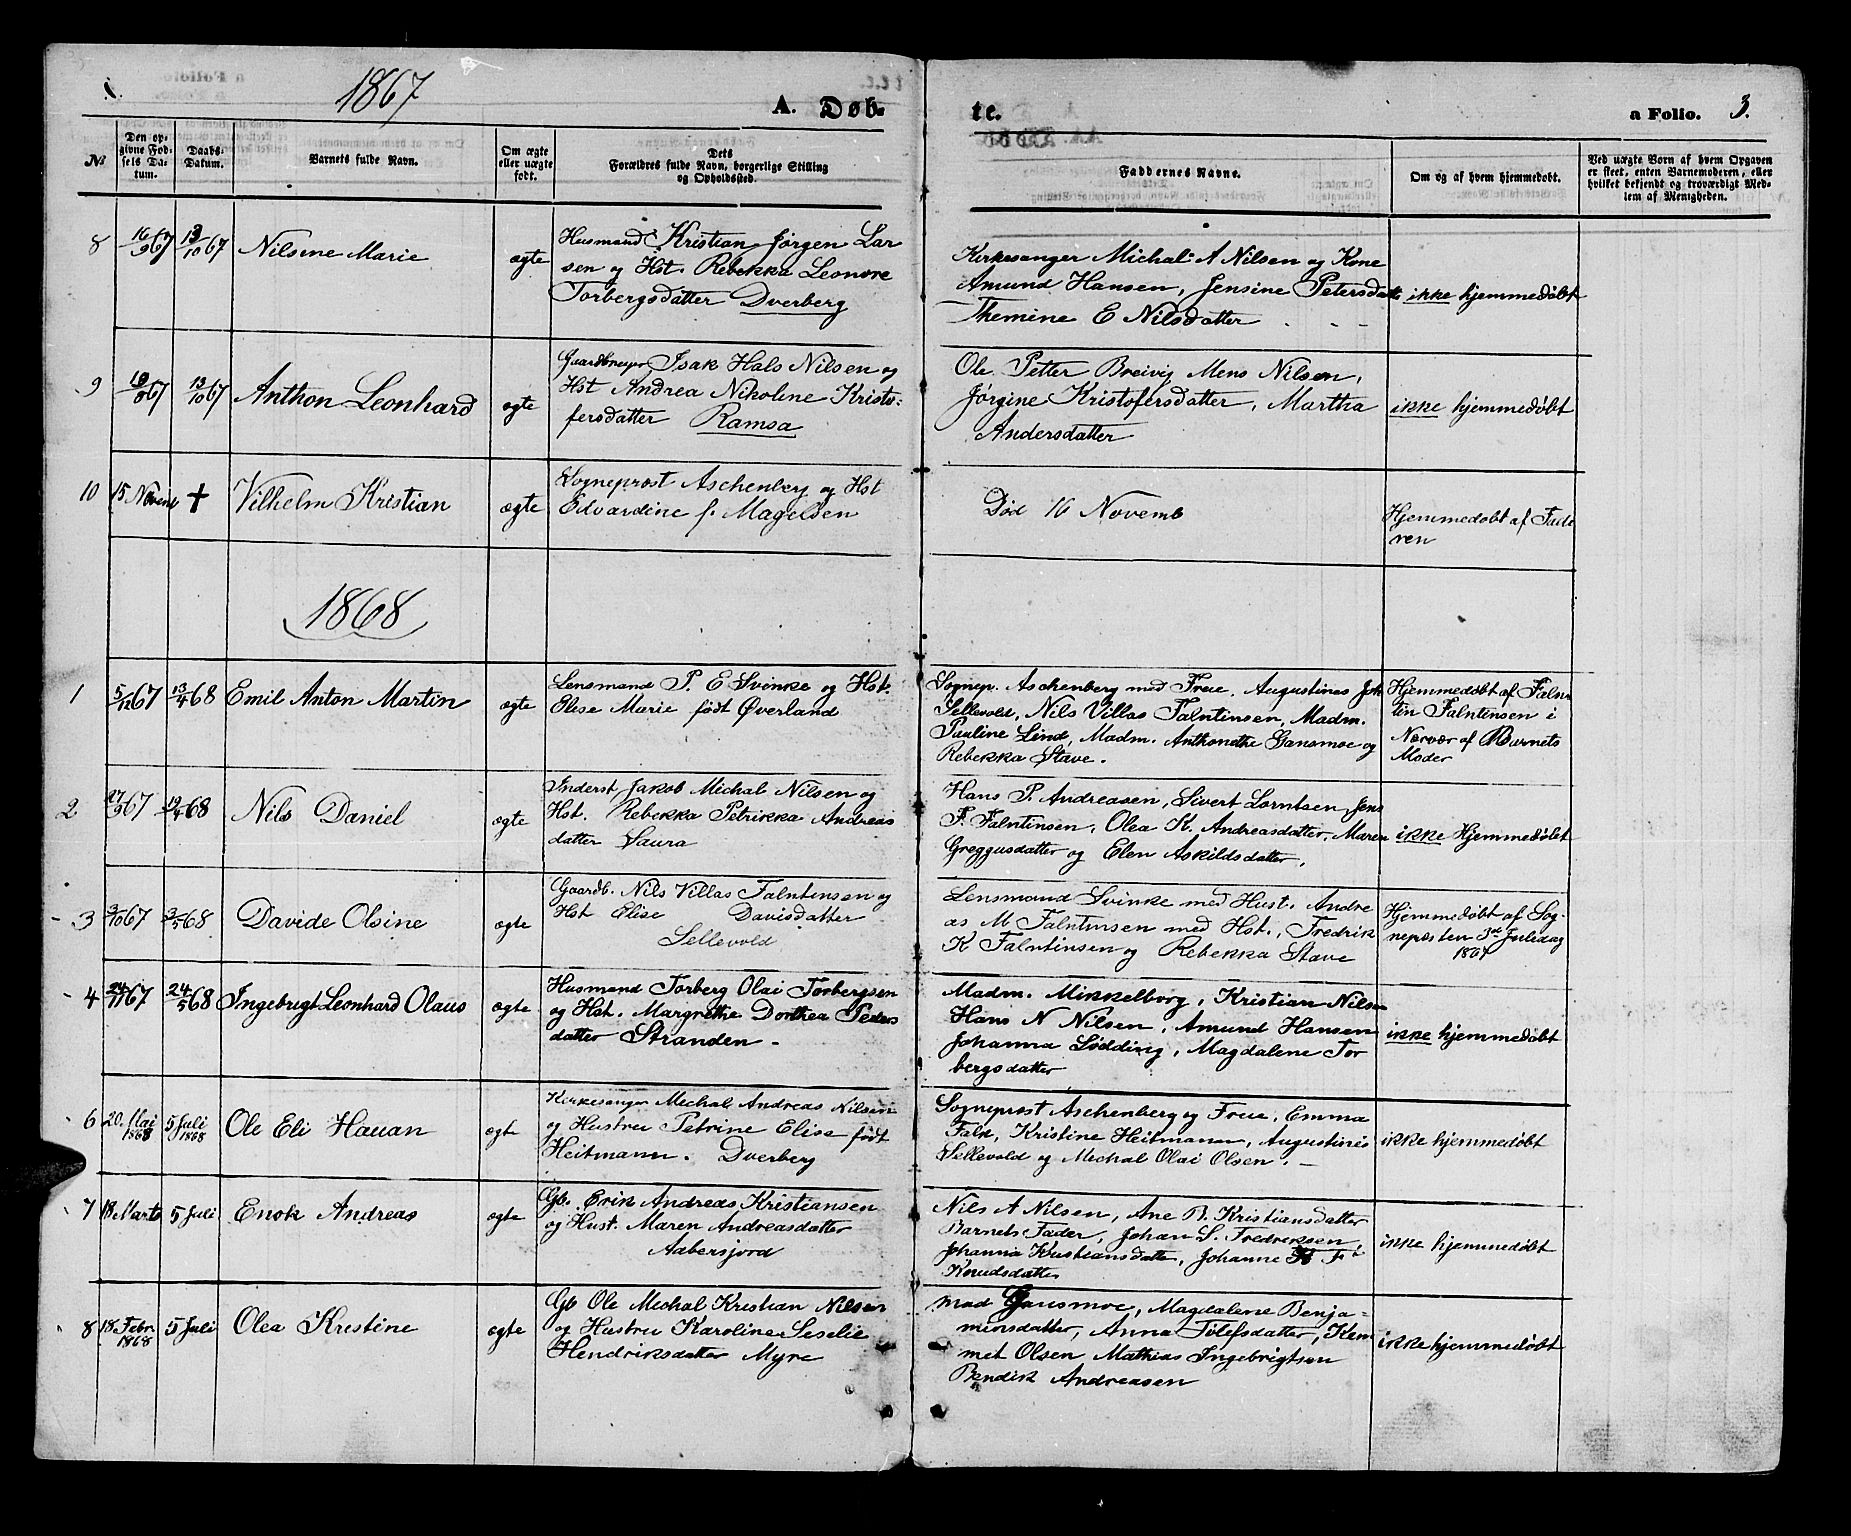 1867
A. Døb-
te.
a Folio. 3.
№
Den op-
givne Fød-
sels Da-
tum.
Daabs-
Datum.
Barnets fulde Navn.
Om ægte
eller uægte
født.
Dets
Forældres fulde Navn, borgerlige Stilling
og Opholdssted.
Faddernes Navne.
Om og af hvem hjemmedøbt.
Ved uægte Børn af hvem Opgaven
er skeet, enten Barnemoderen, eller
hvilket bekjendt og troværdigt Med-
lem af Menigheden.
8
16/9 67
13/10 67
Nilsine Marie
ægte
Husmand Kristian Jørgen Lar
sen og Hst. Rebekka Leonore
Torbergsdatter Dverberg
Kirkesanger Michal A Nilsen og Kone
Amund Hansen, Jensine Petersdatt
Themine E Nilsdatter
ikke hjemmedøbt
9
67
13/10 67
Anthon Leonhard
ægte
Gaardbruger Isak Hals Nilsen og
Hst Andrea Nikoline Kristo-
fersdatter Ramsa
Ole Petter Breivig Mens Nilsen,
Jørgine Kristofersdatter, Martha
Andersdatter
ikke hjemmedøbt
10
15 Novemb
†
Vilhelm Kristian
ægte
Sogneprost Aschenberg og Hst
Edvardine f. Magelsen
Død 16 Novemb
Hjemmedøbt af Fade
ren
1868
1
5/12 67
13/4 68
Emil Anton Martin
ægte
Lensmand P. E Svinke og Hst.
Elise Marie født Øverland
Sognep. Aschenberg med Frue, Augustines Joh
Sellevold, Nils Villas Falntinsen, Madm.
Pauline Lind, Madm. Anthonethe Gansmoe og
Rebekka Stave.
Hjemmedøbt af Faln
tin Falntinsen i
Nærvær af Barnets
Moder
2
27/9 67
19/4 68
Nils Daniel
ægte
Inderst Jakob Michal Nilsen og
Hst. Rebekka Petrikka Andreas
datter Saura
Hans P. Andreasen, Sivert Lorntsen Jens
P. Falntinsen, Olea K. Andreasdatter, Maren
Greggusdatter og Elen Askildsdatter,
ikke Hjemmedøbt
3
3/10 67
3/5 68
Davide Olsine
ægte
Gaardb. Nils Villas Falntinsen og
Hst Elise Davisdatter
Sellevold
Lensmand Svinke med Hust. Andre
as M Falntinsen med Hst., Fredrik
K Falntinsen og Rebekka Stave
Hjemmedøbt af Sog-
nepresten 3de Juledag
1867
4
24/11 67
24/5 68
Ingebrigt Leonhard Olaus
ægte
Husmand Torberg Olai Torbergsen
og Hst. Margrethe Dorthea Peders
datter Stranden -
Madm. Mikkelborg, Kristian Nilsen
Hans N Nilsen, Amund Hansen
Johanna Lødding, Magdalene Tor
bergsdatter
ikke hjemmedøbt
6
20. Mai
1868
5 Juli
1868
Ole Eli Hauan
ægte
Kirkesanger Mechal Andreas Nilsen
og Hustru Petrine Elise født
Heitmann. Dverberg
Sogneprost Aschenberg og Frue, Emma
Falk, Kristine Heitmann, Augustines
Sellevold og Mechal Olai Olsen. -
ikke hjemmedøbt
7
18. Marts
5 Juli
Enok Andreas
ægte
Gb. Erik Andreas Kristiansen
og Hust. Maren Andreasdatter
Aabersjord
Nils A Nilsen, Ane B. Kristiansdatter
Barnets Fader, Johan S. Fredreksen,
Johanna Kristiansdatter, Johanne F
Knudsdatter
ikke hjemmedøbt
8
18 Febr.
1868
5 Juli
Olea Kristine
ægte
Gb Ole Mechal Kristian Nilsen
og Hustru Karoline Seselie
Hendriksdatter Myre
Mad Gansmoe, Magdalene Benja-
minsdatter, Anna Tolefsdatter, Kem
met Olsen Mathias Ingebrigtsen
Bendik Andreasen
ikke hjemmedøbt